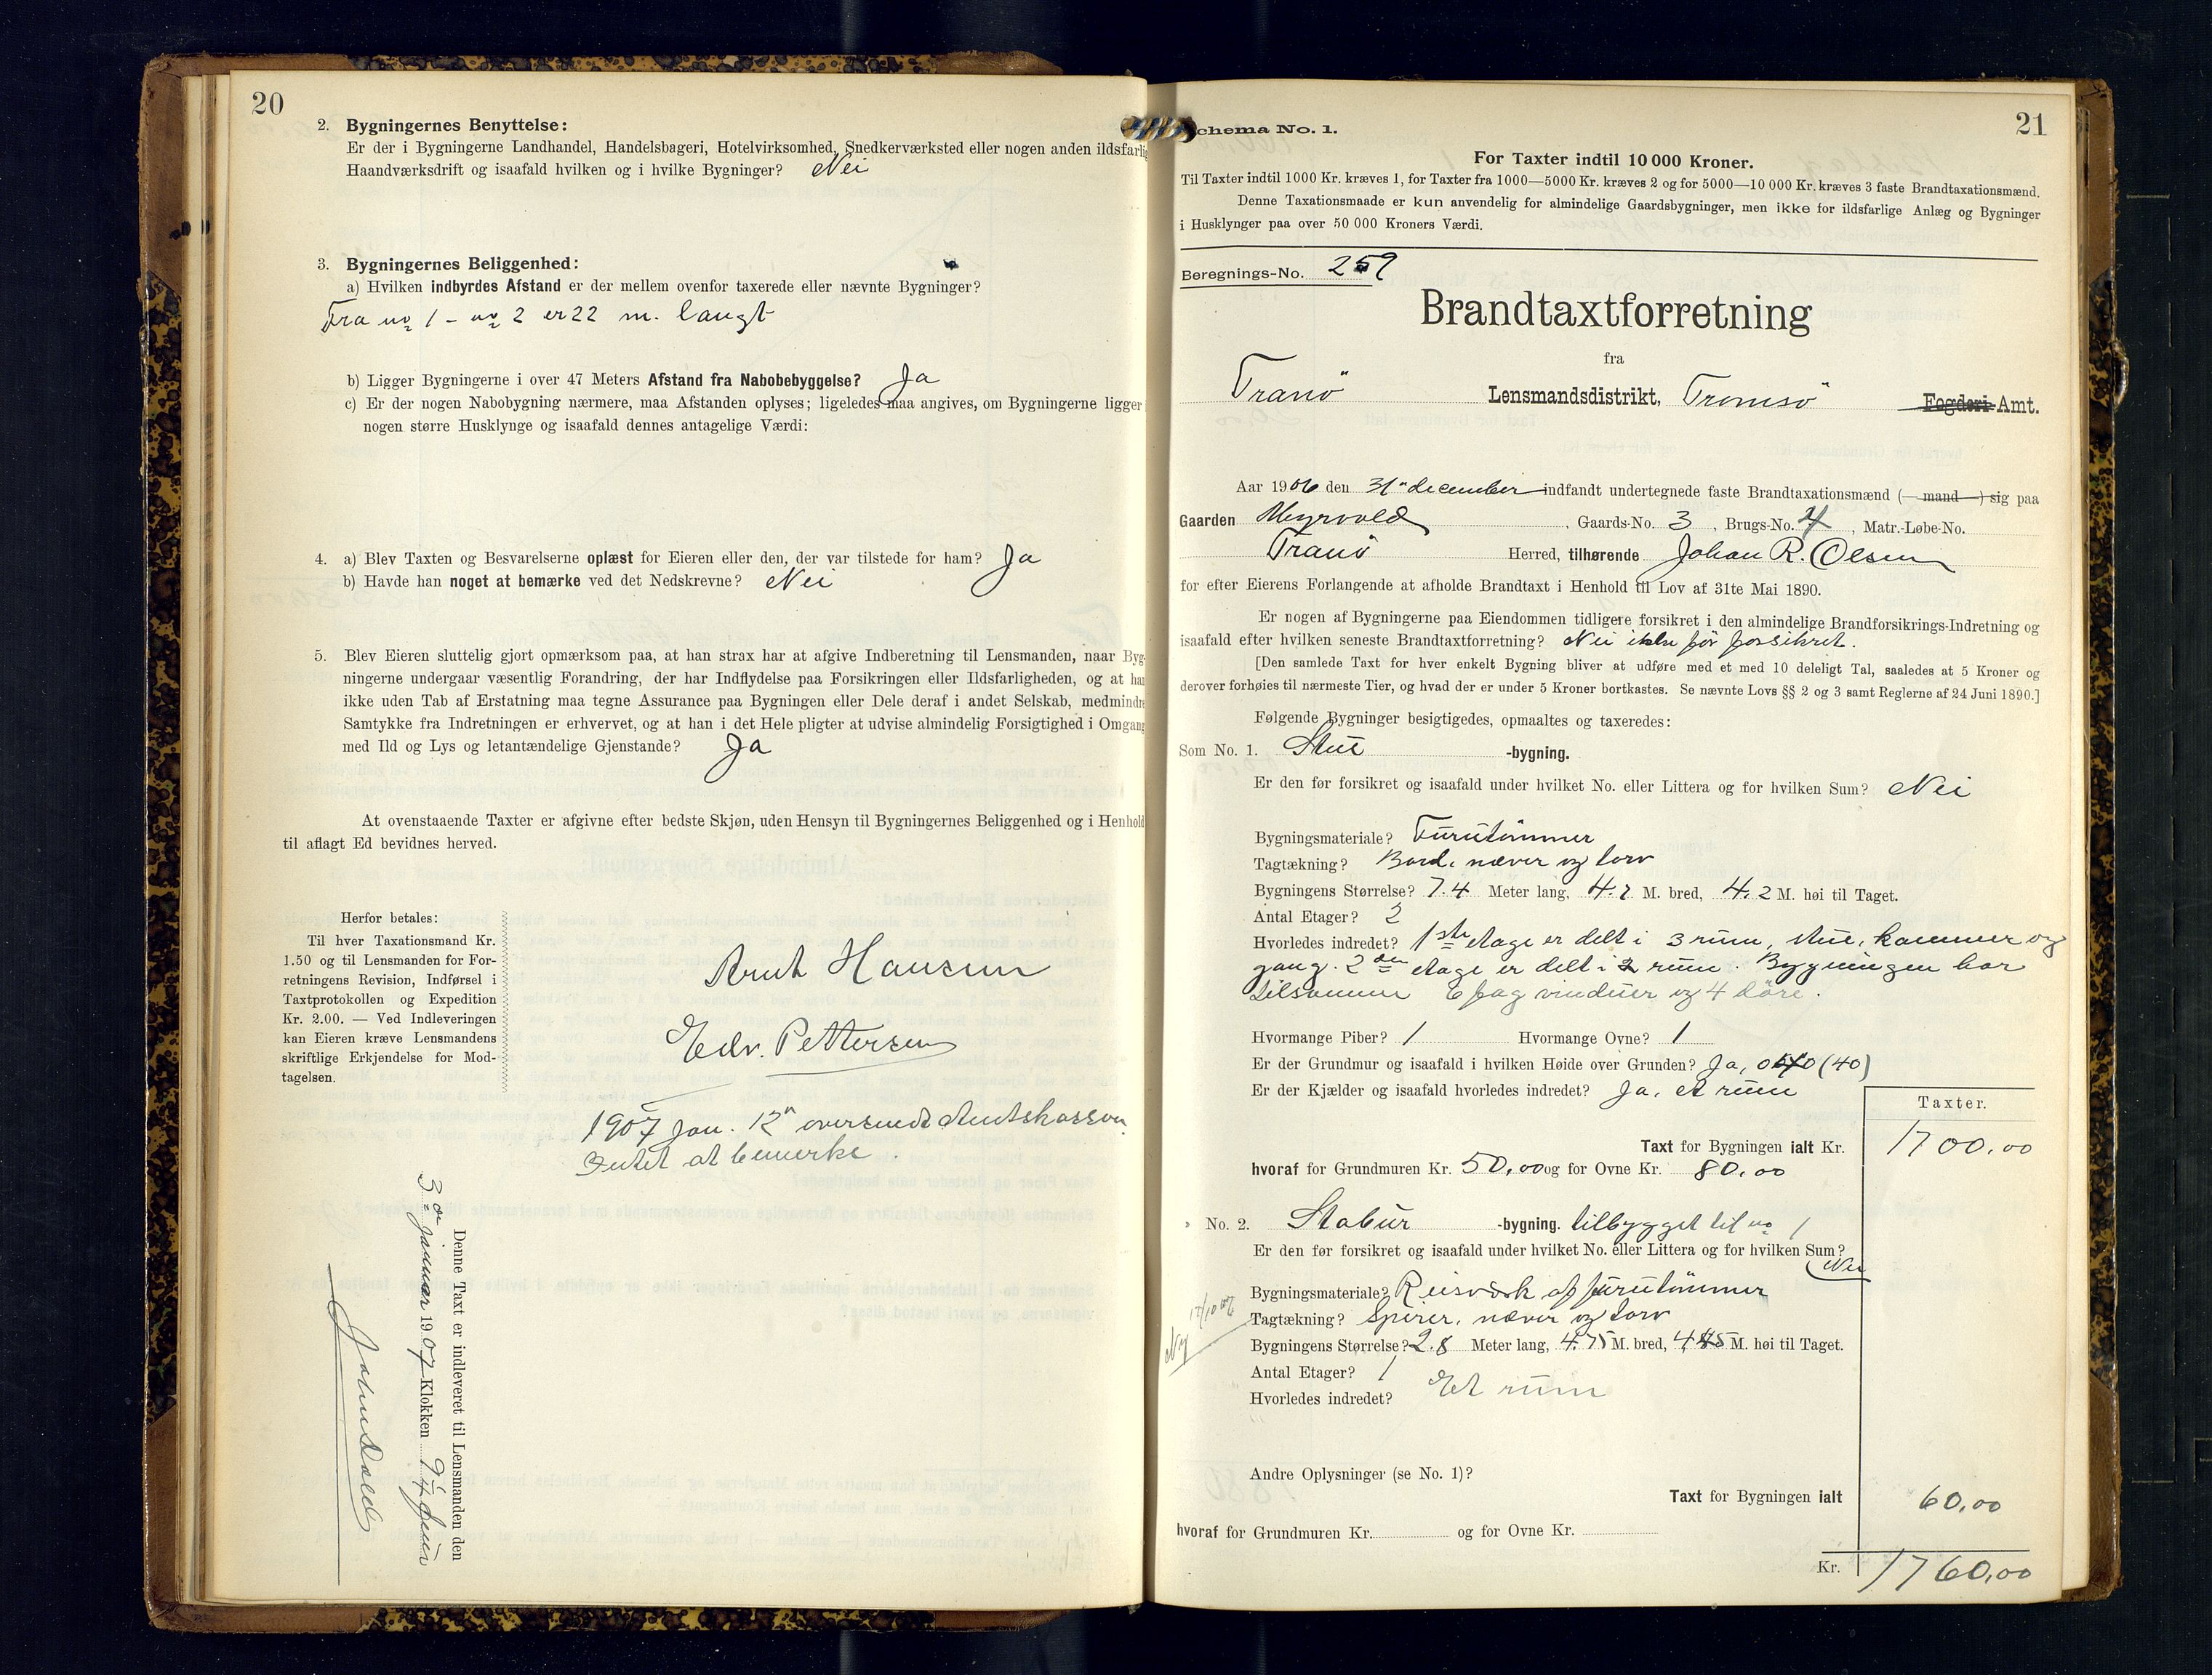 20
2. Bygningernes Benyttelse:
Er der i Bygningerne Landhandel, Handelsbageri, Hotelvirksomhed, Snedkerværksted eller nogen anden ildsfarlig
Haandværksdrift og isaafald hvilken og i hvilke Bygninger? Nei
3. Bygningernes Beliggenhed:
a) Hvilken indbyrdes Afstand er der mellem ovenfor taxerede eller nævnte Bygninger?
Fra no 1 - no 2 er 22 m. langt
b) Ligger Bygningerne i over 47 Meters Afstand fra Nabobebyggelse? Ja
c) Er der nogen Nabobygning nærmere, maa Afstanden oplyses; ligeledes maa angives, om Bygningerne ligger
nogen større Husklynge og isaafald dennes antagelige Værdi:
4. a) Blev Taxten og Besvarelserne oplæst for Eieren eller den, der var tilstede for ham? Ja
b) Havde han noget at bemærke ved det Nedskrevne? Nei
5. Blev Eieren sluttelig gjort opmærksom paa, at han strax har at afgive Indberetning til Lensmanden, naar Byg-
ningerne undergaar væsentlig Forandring, der har Indflydelse paa Forsikringen eller Ildsfarligheden, og at han
ikke uden Tab af Erstatning maa tegne Assurance paa Bygningen eller Dele deraf i andet Selskab, medmindre
Samtykke fra Indretningen er erhvervet, og at han i det Hele pligter at udvise almindelig Forsigtighed i Omgang
med Ild og Lys og letantændelige Gjenstande? Ja
At ovenstaaende Taxter er afgivne efter bedste Skjøn, uden Hensyn til Bygningernes Beliggenhed og i Henhold
til aflagt Ed bevidnes herved.
Herfor betales:
Til hver Taxationsmand Kr.
1.50 og til Lensmanden for For-
retningens Revision, Indførsel i
Taxtprotokollen og Expedition
Kr. 2.00. — Ved Indleveringen
kan Eieren kræve Lensmandens
skriftlige Erkjendelse for Mod-
tagelsen.
Arnt Hansen
Edv. Pettersen
1907 Jan. 12" oversendt Amtskassen.
Intet at bemerke.
Denne Taxt er indleveret til Lensmanden den
3die januar 1907 Klokken 9 1/4
21
Schema No. 1.
For Taxter indtil 10 000 Kroner.
Til Taxter indtil 1000 Kr. kræves 1, for Taxter fra 1000—5000 Kr. kræves 2 og for 5000—10 000 Kr. kræves 3 faste Brandtaxationsmænd.
Denne Taxationsmaade er kun anvendelig for almindelige Gaardsbygninger, men ikke for ildsfarlige Anlæg og Bygninger
i Husklynger paa over 50 000 Kroners Værdi.
Beregnings-No. 259
Brandtaxtforretning
fra
Tranö Lensmandsdistrikt, Tromsö Fogderi Amt.
Aar 1906 den 31" december indfandt undertegnede faste Brandtaxationsmænd (— mand —) sig paa
Gaarden Myrvold, Gaards-No. 3, Brugs-No. 4, Matr.-Løbe-No.
Tranö Herred, tilhørende Johan R. Olsen
for efter Eierens Forlangende at afholde Brandtaxt i Henhold til Lov af 31te Mai 1890.
Er nogen af Bygningerne paa Eiendommen tidligere forsikret i den almindelige Brandforsikrings-Indretning og
isaafald efter hvilken seneste Brandtaxtforretning? Nei ikke før forsikret.
[Den samlede Taxt for hver enkelt Bygning bliver at udføre med et med 10 deleligt Tal, saaledes at 5 Kroner og
derover forhøies til nærmeste Tier, og hvad der er under 5 Kroner bortkastes. Se nævnte Lovs §§ 2 og 3 samt Reglerne af 24 Juni 1890.]
Følgende Bygninger besigtigedes, opmaaltes og taxeredes:
Som No. 1. Stue -bygning.
Er den før forsikret og isaafald under hvilket No. eller Littera og for hvilken Sum? Nei
Bygningsmateriale? Furutömmer
Tagtækning? Bord, næver og torv
Bygningens Størrelse? 7.4 Meter lang, 4.7 M. bred, 4.2 M. høi til Taget.
Antal Etager? 2
Hvorledes indredet? 1ste etage er delt i 3 rum, stue, kammer og
gang. 2den etage er delt i 2 rum. Bygningen har
tilsammen 6 fag vinduer og 4 döre.
Hvormange Piber? 1 Hvormange Ovne? 1
Er der Grundmur og isaafald i hvilken Høide over Grunden? Ja, 040 (40)
Er der Kjælder og isaafald hvorledes indredet? Ja, et rum
Taxter.
Taxt for Bygningen ialt Kr. 1700,00
hvoraf for Grundmuren Kr. 50,00 og for Ovne Kr. 80,00
" No. 2. Stabur -bygning. tilbygget til no 1
Er den før forsikret og isaafald under hvilket No. eller Littera og for hvilken Sum?
Nei
Bygningsmateriale? Reisværk af furutömmer
Tagtækning? Spirer, næver og torv
Ny
Bygningens Størrelse? 2.8 Meter lang, 4.75 M. bred, M. høi til Taget.
Antal Etager? 1
Hvorledes indredet? Et rum
Andre Oplysninger (se No. 1)?
Taxt for Bygningen ialt 60,00
hvoraf for Grundmuren Kr. og for Ovne Kr.
Kr. 1760,00